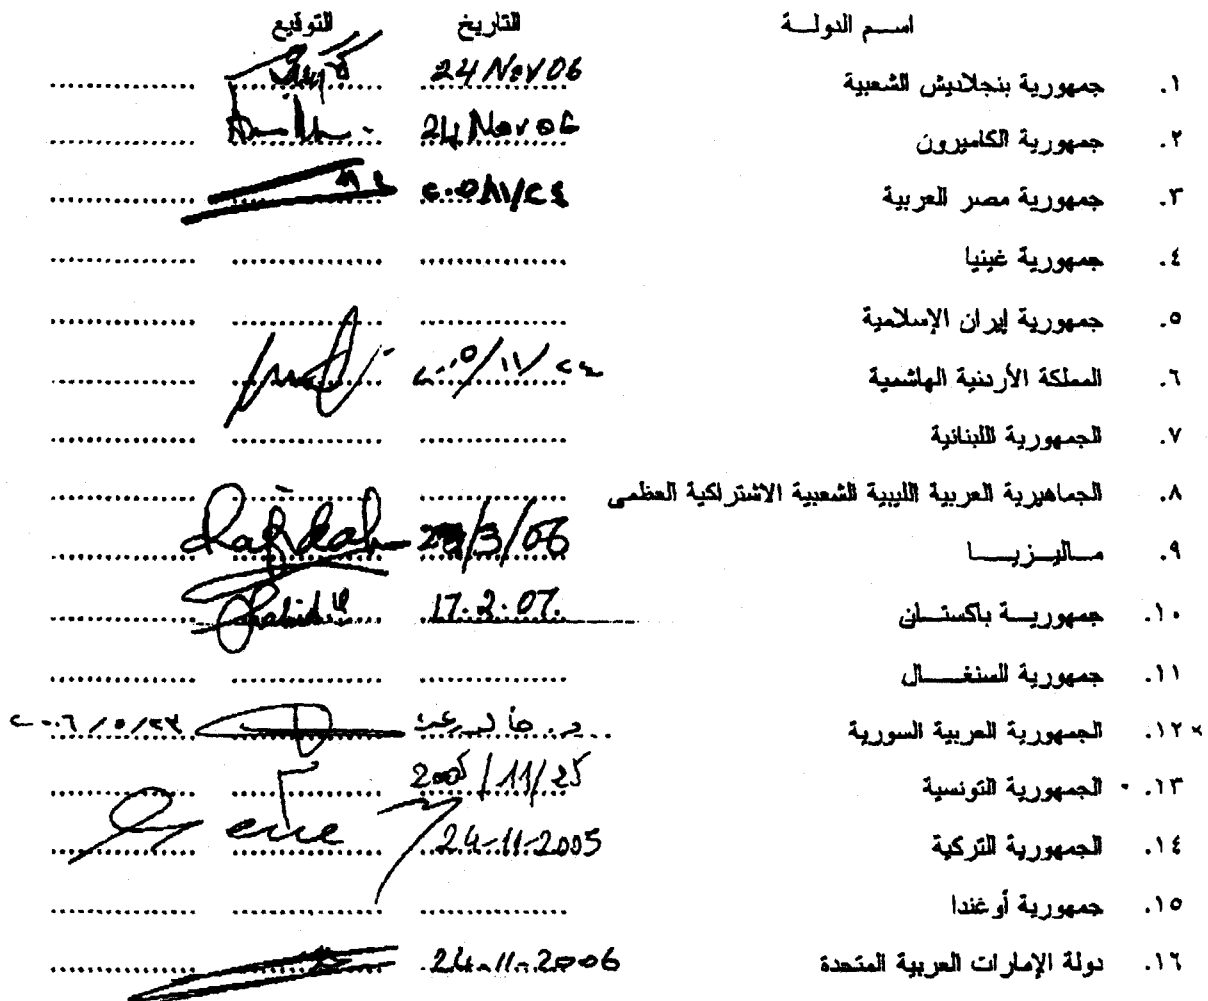 اسـم الدولـــة التاريخ التوقيع
١. جمهورية بنجلاديش الشعبية 24 Nov 06
٢. جمهورية الكاميرون 24 Nov 06
٣. جمهورية مصر العربية
٤. جمهورية غينيا
٥. جمهورية إيران الإسلامية
٦. المملكة الأردنية الهاشمية ٢٠٠٥/١١/٢٤
٧. الجمهورية اللبنانية
٨. الجماهيرية العربية الليبية الشعبية الاشتراكية العظمى
٩. مـاليـزيـــا /3/06
١٠. جمهوريـــة باكستـــان 17.2.07.
١١. جمهورية السنغـــــال
١٢. الجمهورية العربية السورية د. ٢٠٠٦/٥/٢٣
١٣. الجمهورية التونسية 2005/11/25
١٤. الجمهورية التركية 24-11-2005
١٥. جمهورية أوغندا
١٦. دولة الإمارات العربية المتحدة 24-11-2006